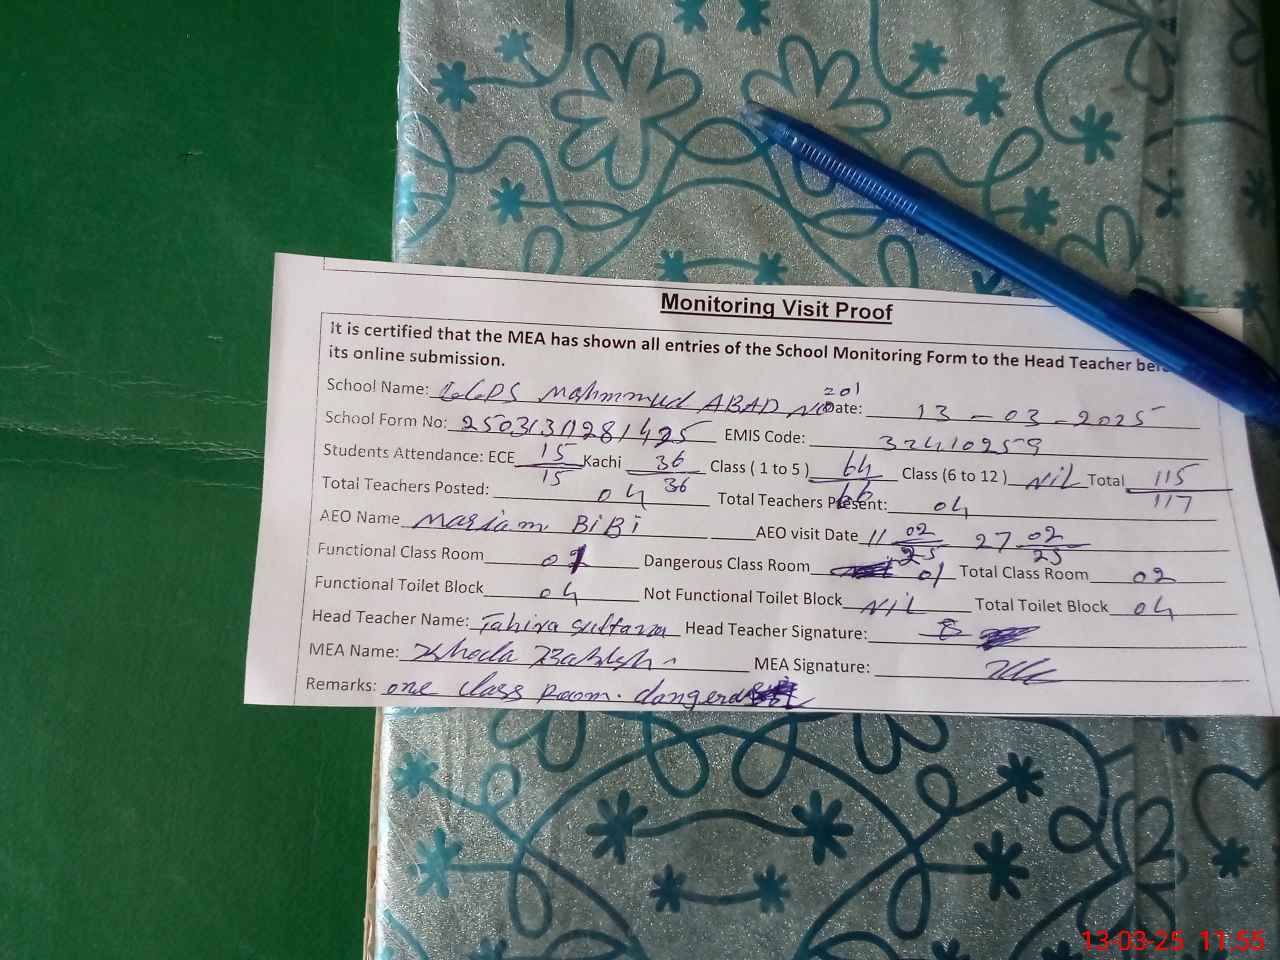 Monitoring Visit Proof
It is certified that the MEA has shown all entries of the School Monitoring Form to the Head Teacher
its online submission.
School Name: GGPS Mahmmud ABAD No 201 Date: 13-03-2025
School Form No: EMIS Code: 32410259
Students Attendance: ECE 15/15 Kachi 36/36 Class ( 1 to 5 ) 64/66 Class (6 to 12 ) NiL Total 115/117
Total Teachers Posted: 04 Total Teachers Present: 04
AEO Name Mariam BiBi AEO visit Date 11 02/25 27 02/25
Functional Class Room 01 Dangerous Class Room 01 Total Class Room 02
Functional Toilet Block 04 Not Functional Toilet Block NiL Total Toilet Block 04
Head Teacher Name: Tahira Sultana Head Teacher Signature:
MEA Name: MEA Signature:
Remarks: one class Room.
13-03-25 11:55